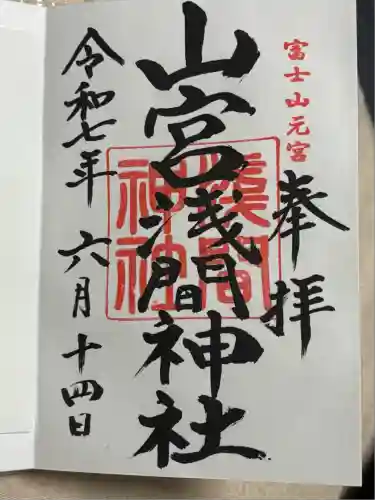 富士山元宮
奉拝
山宮浅間神社
浅間神社
令和七年 六月 十四日